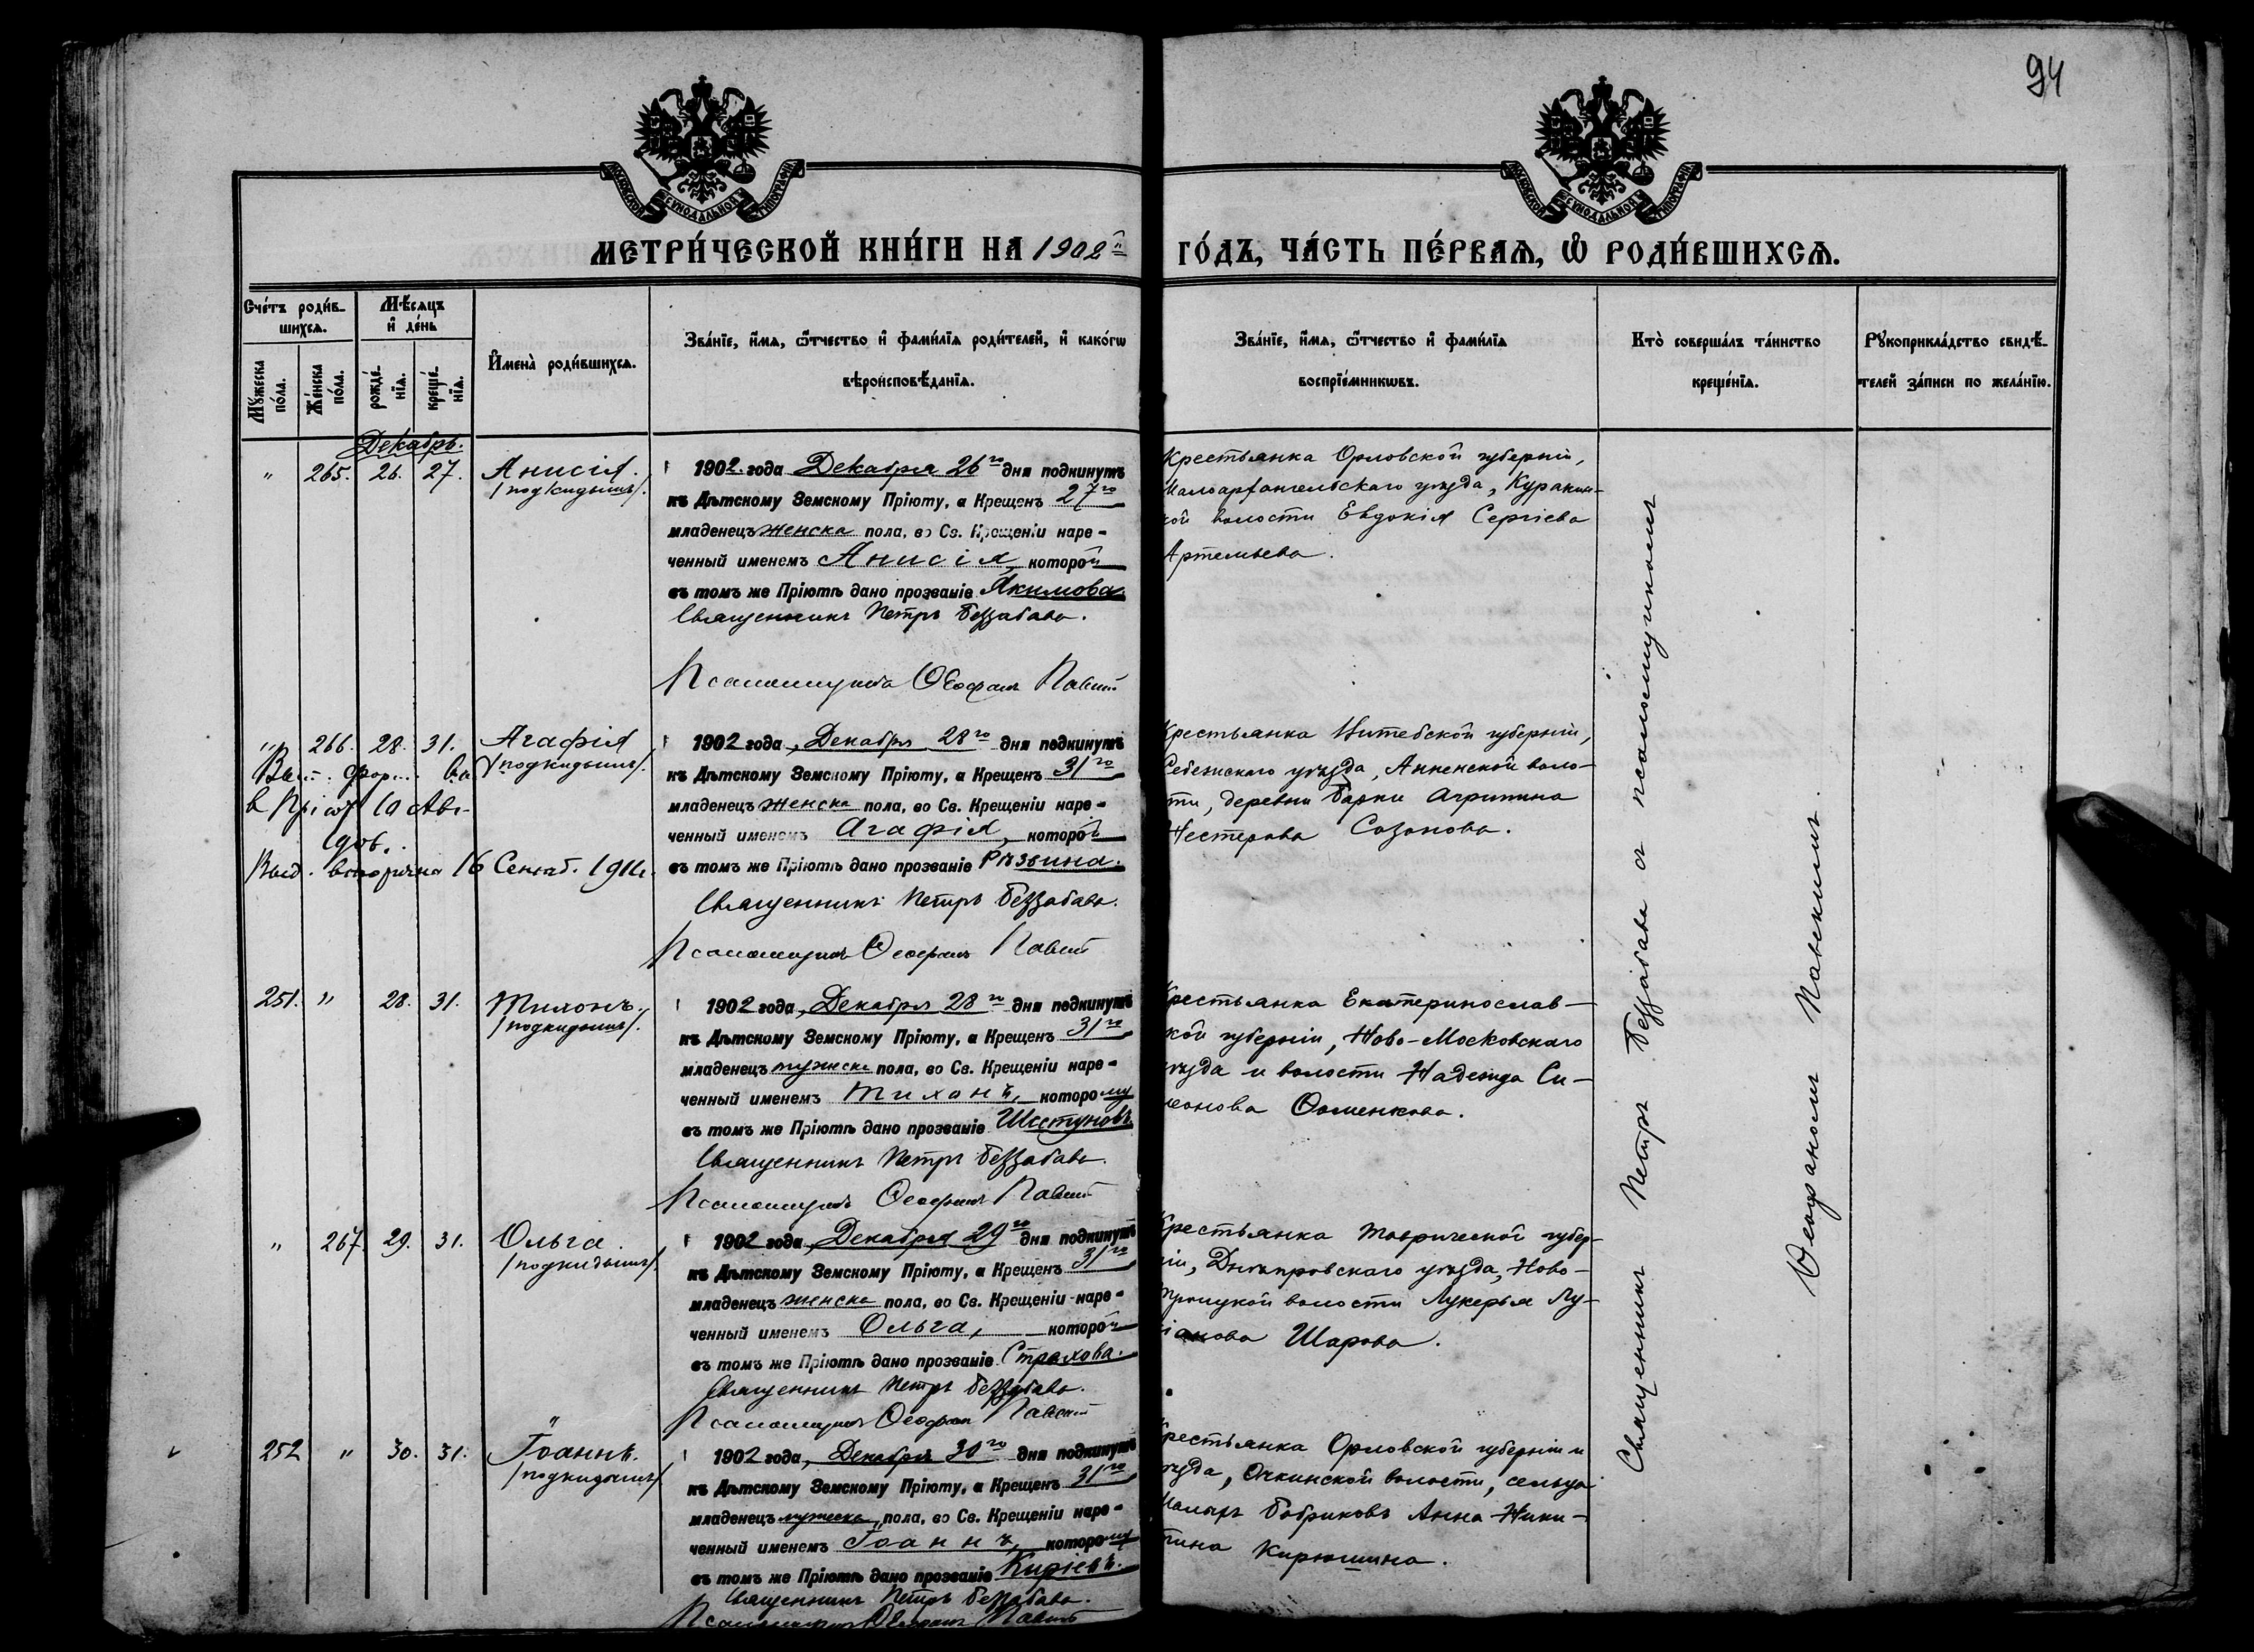 94
МОСКОВСКОЙ СѴНОДАЛЬНОЙ ТИПОГРАФІИ
МОСКОВСКОЙ СѴНОДАЛЬНОЙ ТИПОГРАФІИ
МЕТРИ́ЧЕСКОЙ КНИ́ГИ НА 1902й
ГО́ДЪ, ЧА́СТЬ ПЕ́РВАѦ, Ѡ҆ РОДИ́ВШИХСѦ.
Сче́тъ роди́в-
шихсѧ.
Мꙋ́жеска по́ла.
Же́нска по́ла.
Мѣ́сѧцъ
и҆ де́нь
рожде́-
нїѧ.
креще́-
нїѧ.
И҆мена̀ роди́вшихсѧ.
Зва́нїе, и҆́мѧ, ѻ҆́тчество и҆ фами́лїѧ роди́телей, и҆ како́гѡ
вѣроисповѣ́данїѧ.
Зва́нїе, и҆́мѧ, ѻ҆́тчество и҆ фами́лїѧ
воспрїе́мникѡвъ.
Кто̀ соверша́лъ та́инство
креще́нїѧ.
Рꙋкоприкла́дство свидѣ́-
телей за́писи по жела́нїю.
Декабрь.
" 265. 26. 27. Анисія.
/подкидышъ/.
1902 года Декабря 26го дня подкинутъ
къ Дѣтскому Земскому Пріюту, а Крещенъ 27го
младенецъ женска пола, во Св. Крещеніи наре-
ченный именемъ Анисія, которой
въ томъ же Пріютѣ дано прозваніе Якимова.
Священникъ Петръ Беззабава.
Псаломщикъ Ѳеофанъ Павскій
Крестьянка Орловской губерніи,
Малоархангельскаго уѣзда, Куракин-
кой волости Евдокія Сергіева
Артемьева.
" 266. 28. 31. Агафія
/подкидышъ/.
в Пріют 10 Авг.
Выд. вторично 16 Сентяб. 1911г.
1902 года, Декабря 28го дня подкинутъ
къ Дѣтскому Земскому Пріюту, а Крещенъ 31го
младенецъ женска пола, во Св. Крещеніи наре-
ченный именемъ Агафія, которой
въ томъ же Пріютѣ дано прозваніе Рѣзвина.
Священникъ Петръ Беззабава.
Псаломщикъ Ѳеофанъ Павскій
Крестьянка Витебской губерніи,
Себежскаго уѣзда, Анненской воло-
ти, деревни Барки Агрипина
Нестерова Созонова.
251. " 28. 31. Тихонъ.
/подкидышъ/.
1902 года, Декабря 28го дня подкинутъ
къ Дѣтскому Земскому Пріюту, а Крещенъ 31го
младенецъ мужеска пола, во Св. Крещеніи наре-
ченный именемъ Тихонъ, которому
въ томъ же Пріютѣ дано прозваніе Шестуновъ
Священникъ Петръ Беззабава.
Псаломщикъ Ѳеофанъ Павскій
Крестьянка Екатеринослав-
кой губерніи, Ново-Московскаго
уѣзда и волости Надежда Си-
меонова Ѳоменкова.
" 267. 29. 31. Ольга.
/подкидышъ/.
1902 года, Декабря 29го дня подкинутъ
къ Дѣтскому Земскому Пріюту, а Крещенъ 31го
младенецъ женска пола, во Св. Крещеніи наре-
ченный именемъ Ольга, которой
въ томъ же Пріютѣ дано прозваніе Страхова.
Священникъ Петръ Беззабава.
Псаломщикъ Ѳеофанъ Павскій
Крестьянка Таврической губер-
ніи, Днѣпровскаго уѣзда, Ново-
троицкой волости Лукерья Лу-
кіанова Шарова.
252 " 30. 31. Іоаннъ.
/подкидышъ/.
1902 года, Декабря 30го дня подкинутъ
къ Дѣтскому Земскому Пріюту, а Крещенъ 31го
младенецъ мужеска, пола, во Св. Крещеніи наре-
ченный именемъ Іоаннъ, которому
въ томъ же Пріютѣ дано прозваніе Киріевъ.
Священникъ Петръ Беззабава.
Псаломщикъ Ѳеофанъ Павскій
Крестьянка Орловской губерніи и
уѣзда, Очкинской волости, сельца
Малыхъ Бобриковъ Анна Ники-
тина Кирюшина.
Священникъ Петръ Беззабава съ псаломщикомъ
Ѳеофаномъ Павскимъ.